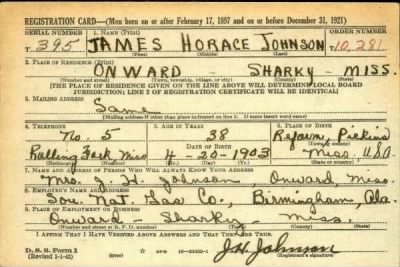 REGISTRATION CARD—(Men born on or after February 17, 1897 and on or before December 31, 1921)
SERIAL NUMBER 1. NAME (Print) ORDER NUMBER
T. 395 JAMES HORACE JOHNSON T10,281
(First) (Middle) (Last)
2. PLACE OF RESIDENCE (Print)
ONWARD - SHARKY - MISS.
(Number and street) (Town, township, village, or city) (County) (State)
(THE PLACE OF RESIDENCE GIVEN ON THE LINE ABOVE WILL DETERMINE LOCAL BOARD
JURISDICTION; LINE 2 OF REGISTRATION CERTIFICATE WILL BE IDENTICAL)
3. MAILING ADDRESS
Same
(Mailing address if other than place indicated on line 2. If same insert word same)
4. TELEPHONE 5. AGE IN YEARS 6. PLACE OF BIRTH
No. 5 38 Reform, Pickins
DATE OF BIRTH
Rolling Fork Miss 4-20-1903 Miss. USA
7. NAME AND ADDRESS OF PERSON WHO WILL ALWAYS KNOW YOUR ADDRESS
Mrs. J. H. Johnson Onward, Miss.
8. EMPLOYER'S NAME AND ADDRESS
Sou. Nat. Gas Co., Birmingham, Ala.
9. PLACE OF EMPLOYMENT OR BUSINESS
Onward - Sharky - Miss.
(Number and street or R. F. D. number) (Town) (County) (State)
I AFFIRM THAT I HAVE VERIFIED ABOVE ANSWERS AND THAT THEY ARE TRUE.
D. S. S. Form 1
(Revised 1-1-42) J.H. Johnson
(Registrant's signature)